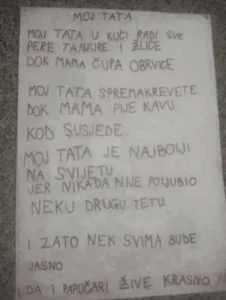 MOJ TATA
MOJ TATA U KUĆI RADI SVE
PERE TANJURE I ŽLICE
DOK MAMA ČUPA OBRVICE
MOJ TATA SPREMA KREVETE
DOK MAMA PIJE KAVU
KOD SUSJEDE.
MOJ TATA JE NAJBOLJI
NA SVIJETU
JER NIKADA NIJE POLJUBIO
NEKU DRUGU TETU
I ZATO NEK SVIMA BUDE
JASNO
DA I PAPUČARI ŽIVE KRASNO